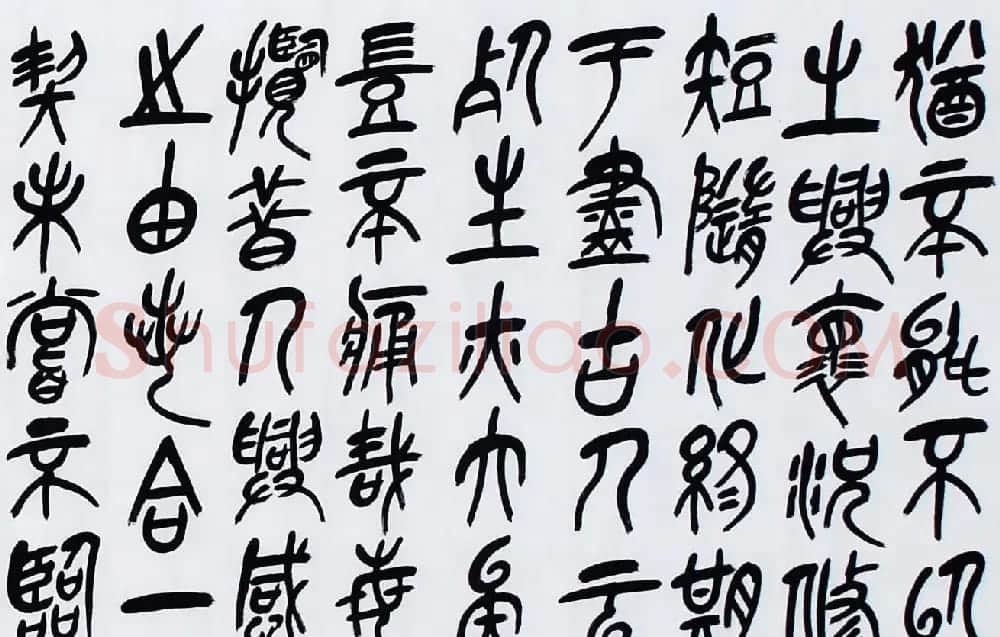 猶不能不以
之興懷況修
短隨化終期
于盡古人云
死生亦大矣
豈不痛哉每
攬昔人興感
之由若合一
契未嘗不臨
Shufaziliao.com